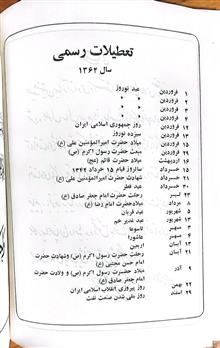 تعطیلات رسمی
سال ۱۳۶۲
۱ فروردین عید نوروز
۲ فروردین " "
۳ فروردین " "
۴ فروردین " "
۱۲ فروردین روز جمهوری اسلامی ایران
۱۳ فروردین سیزده نوروز
فروردین میلاد حضرت امیرالمؤمنین علی (ع)
فروردین مبعث حضرت رسول اکرم (ص)
اردیبهشت میلاد حضرت قائم (عج)
۱۵ خرداد سالروز قیام ۱۵ خرداد ۱۳۴۲
خرداد شهادت حضرت امیرالمؤمنین علی (ع)
خرداد عید فطر
تیر رحلت حضرت امام جعفر صادق (ع)
مرداد میلاد حضرت امام رضا (ع)
شهریور عید قربان
شهریور عید غدیر خم
مهر تاسوعا
مهر عاشورا
آبان اربعین
آبان رحلت حضرت رسول اکرم (ص) و شهادت حضرت
امام حسن مجتبی (ع)
۹ آذر میلاد حضرت رسول اکرم (ص) و ولادت حضرت
امام جعفر صادق (ع)
۲۲ بهمن روز پیروزی انقلاب اسلامی ایران
۲۹ اسفند روز ملی شدن صنعت نفت